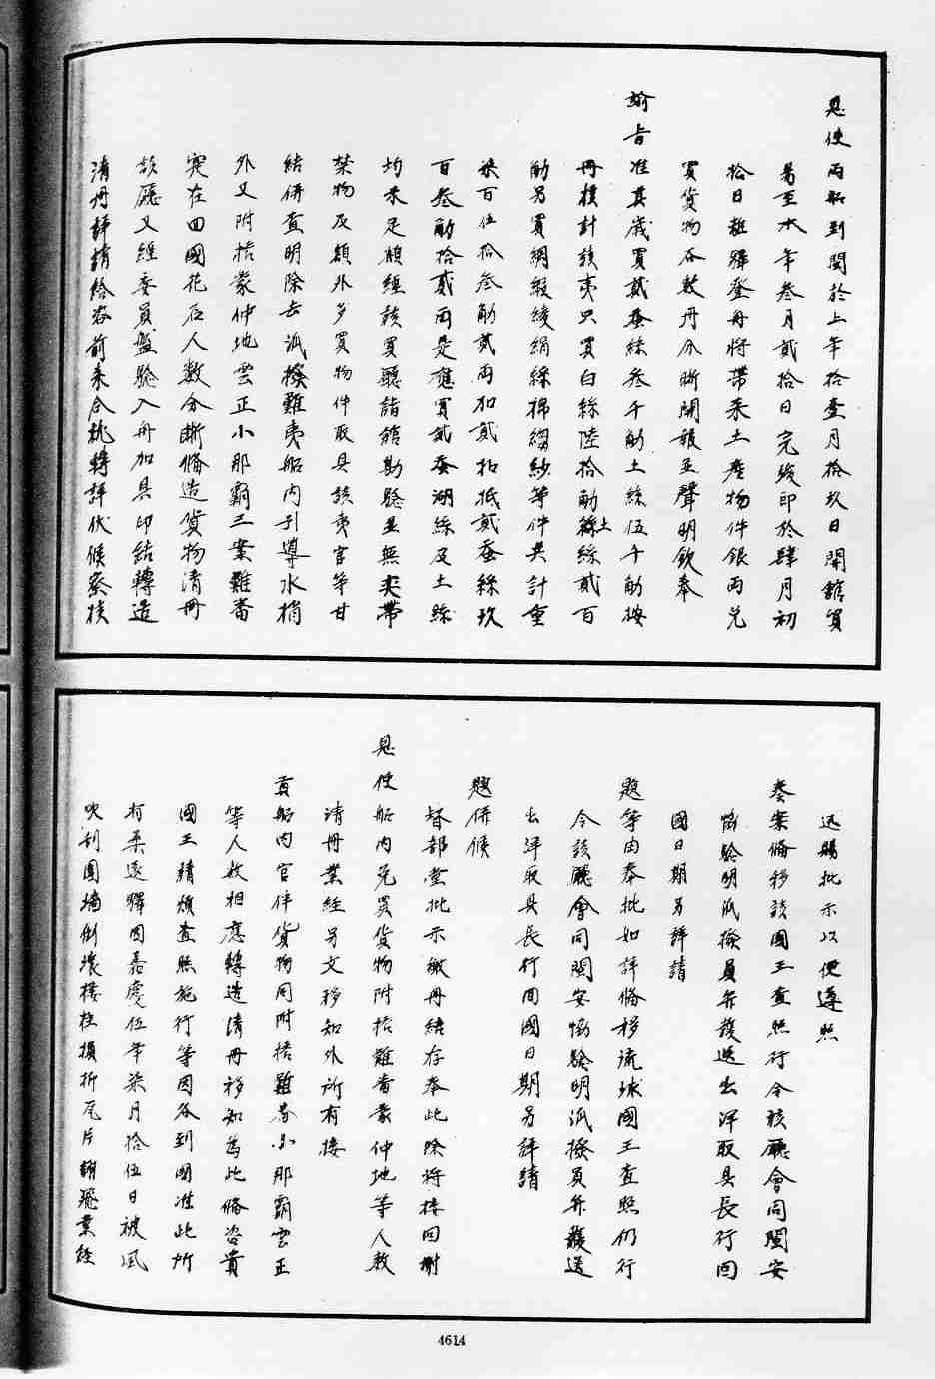 恩使兩船到閩於上年拾壹月拾玖日開館貿
易至本年叁月貳拾日完竣即於肆月初
拾日離驛登舟將帶來土產物件銀兩兌
買貨物各數冊分晰開報並聲明欽奉
諭旨准其歲買貳蚕絲叁千觔土絲伍千觔按
冊摸計該夷只買白絲陸拾觔土絲貳百
觔另買綢緞綾絹絲棉縐紗等件共計重
柒百伍拾叁觔貳兩加貳扣抵貳蚕絲玖
百叁觔拾貳兩是應買貳蚕湖絲及土絲
均未足額經該買聽詣舘勘驗並無夾帶
禁物及額外多買物件取具該夷官等甘
結併查明除去派撥難夷船內引導水梢
外又附搭蒙仲地雲正小那霸三案難畨
寔在回國花名人數分晰俻造貨物清冊
該廳又經委員盤驗入冊加具印結轉造
清冊詳請給咨前來合就轉詳伏候察核
迅賜批示以便遵照
奏案俻移該國王查照行令該廳會同閩安
協驗明派撥員弁護送出洋取具長行回
國日期另詳請
題等由奉批如詳俻移流球國王查照仍行
令該廳會同閩安協驗明派撥員弁護送
出洋取具長行回國日期另詳請
題併候
督部堂批示繳冊結存奉此除將接回謝
恩使船內兌買貨物附搭難畨蒙仲地等人数
清冊業經另文移知外所有接
貢船內官伴貨物同附搭難畨小那霸雲正
等人数相應轉造清冊移知為此俻咨貴
國王請煩查照施行等因咨到國准此所
有柔遠驛因嘉慶伍年柒月拾伍日被風
吹刮圍墻倒壞樓柱損折瓦片翻飛業經
4614